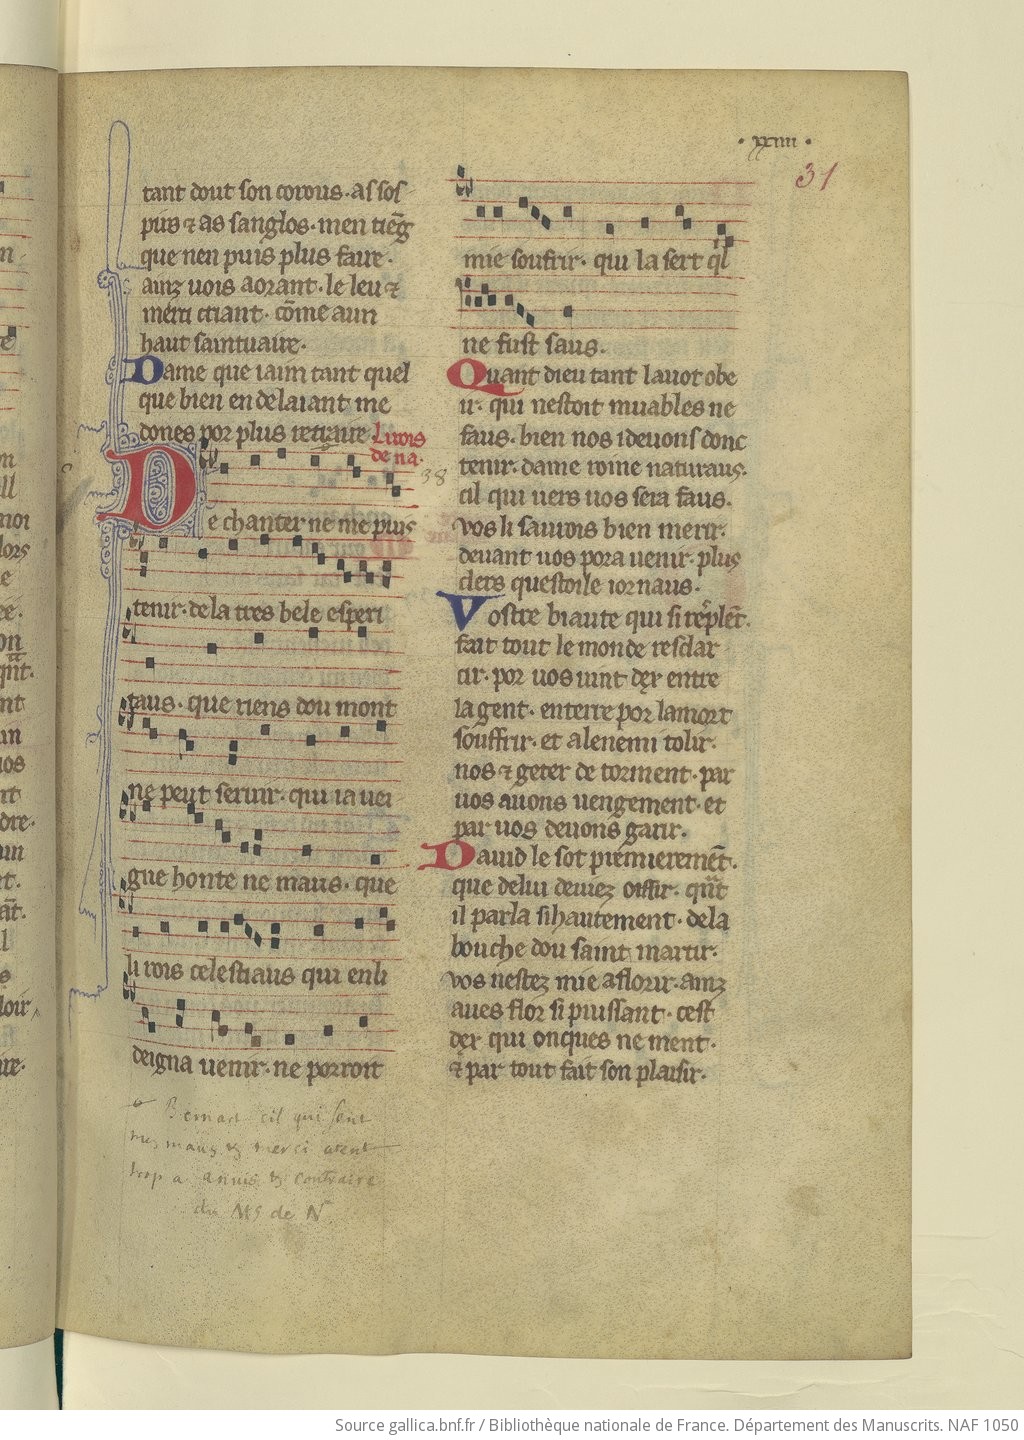 · xxiiii ·
31
tant dout son corous · as sos
pirs ⁊ as sanglos · men tieg̃
que nen puis plus faire ·
ainz uois aorant · le leu ⁊
merci criant · cõme a un
haut saintuaire ·
Dame que iaim tant quel
que bien en delaiant me
dones por plus retraire · Li rois
de na ·
38
De chanter ne me puis
tenir · de la tres bele esperi
taus · que riens dou mont
ne peut seruir · qui ia uei
gne honte ne maus · que
li rois celestiaus qui en li
deigna uenir · ne porroit
Bernart cil qui sont
mes maus & merci atent
trop a anuis & contraire
du MS de N
mie souffrir · qui la sert ql̃
ne fust saus ·
Quant dieu tant lauot obe
ir · qui nestoit muables ne
faus · bien nos i deuons donc
tenir · dame roine naturaus ·
cil qui uers uos sera faus ·
vos li saurois bien merir ·
deuant uos pora uenir · plus
clers questoile iornaus ·
Vostre biaute qui si resplẽt ·
fait tout le monde resclar
cir · por uos uint dex entre
la gent · en terre por la mort
souffrir · et a lenemi tolir ·
nos ⁊ geter de torment · par
uos auons uengement · et
par uos deuons garir ·
Dauid le sot premieremẽt ·
que de lui deuiez oissir · qñt
il parla si hautement · de la
bouche dou saint martir ·
vos nestez mie a florir · ainz
aues flor si puissant · cest
dex qui onques ne ment ·
⁊ par tout fait son plaisir ·
Source gallica.bnf.fr / Bibliothèque nationale de France. Département des Manuscrits. NAF 1050